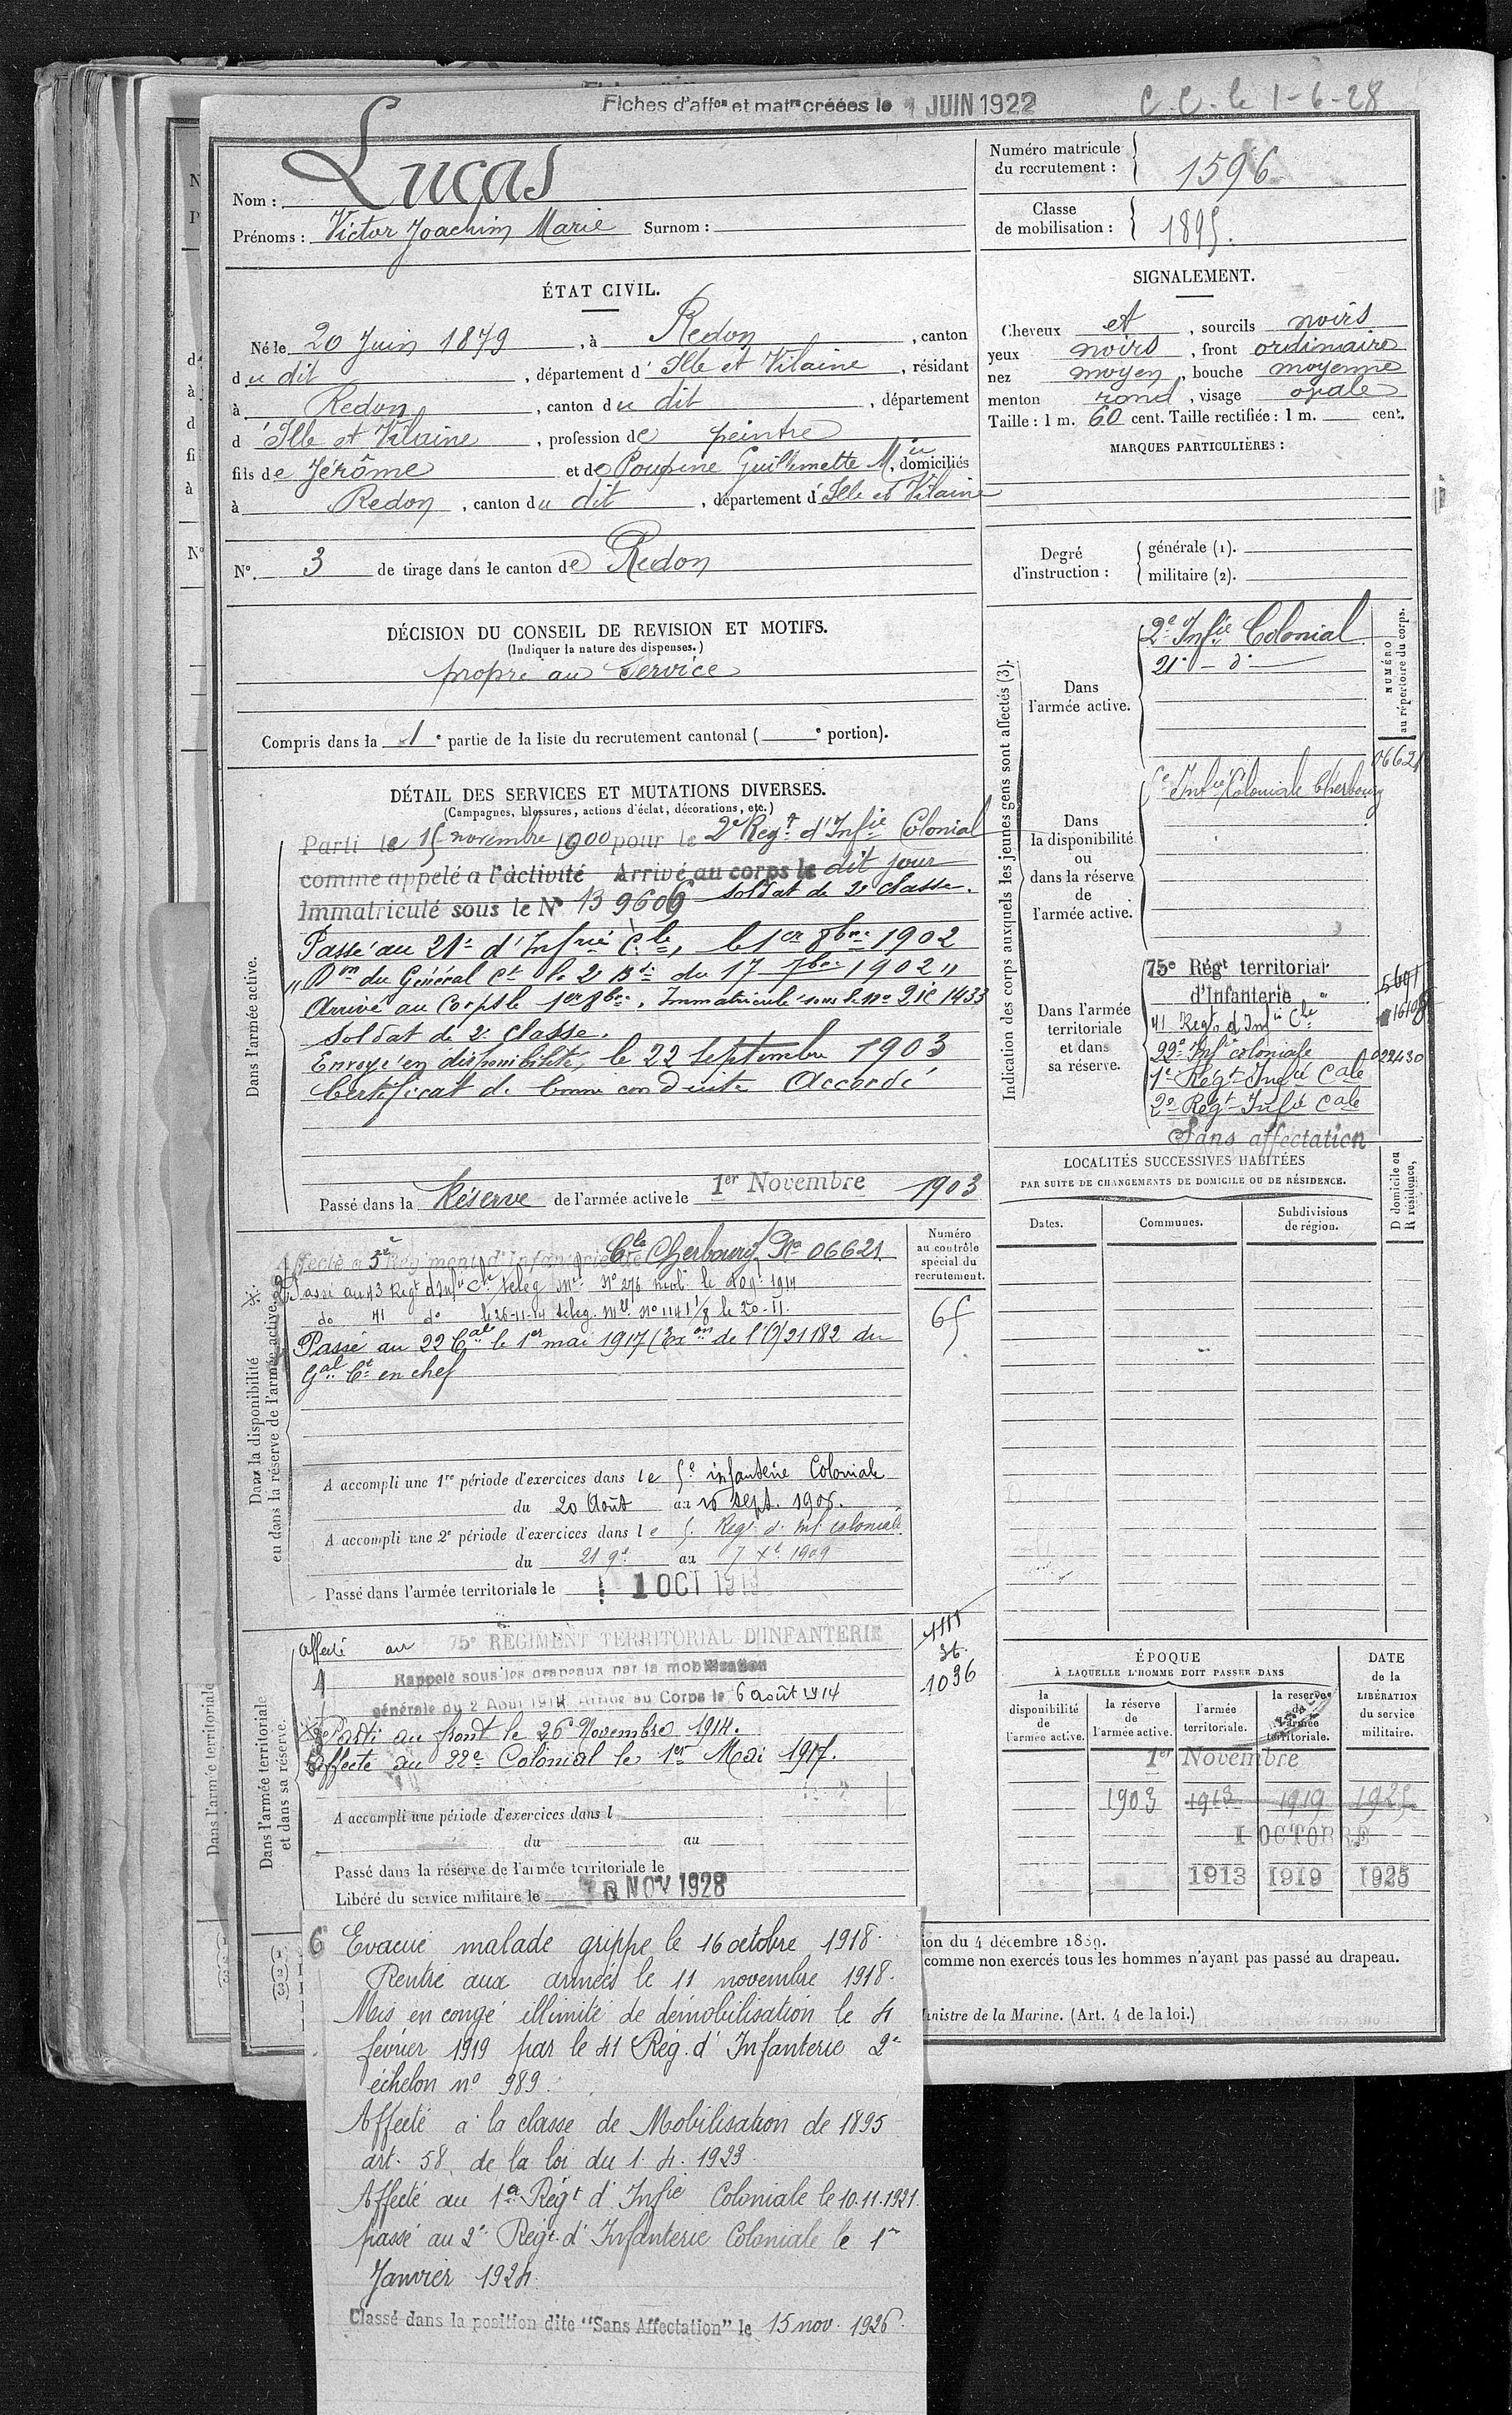 Fiches d'affon et matre créées le 1 JUIN 1922
C.C. le 1-6-28
Nom : Lucas
Prénoms : Victor Joachim Marie Surnom :
Numéro matricule du recrutement : 1596
Classe de mobilisation : 1895.
ÉTAT CIVIL.
Né le 20 Juin 1879, à Redon, canton
du dit, département d'Ille et Vilaine, résidant
à Redon, canton du dit, département
d'Ille et Vilaine, profession de peintre
fils de Jérôme et de Poupine Guillemette Mie, domiciliés
à Redon, canton du dit, département d'Ille et Vilaine
N°. 3 de tirage dans le canton de Redon
SIGNALEMENT.
Cheveux et, sourcils noirs
yeux noirs, front ordinaire
nez moyen, bouche moyenne
menton rond, visage ovale
Taille : 1 m. 60 cent. Taille rectifiée : 1 m. cent.
MARQUES PARTICULIÈRES :
Degré d'instruction : générale (1).
militaire (2).
DÉCISION DU CONSEIL DE REVISION ET MOTIFS.
(Indiquer la nature des dispenses.)
propre au service
Compris dans la 1e partie de la liste du recrutement cantonal ( e portion).
DÉTAIL DES SERVICES ET MUTATIONS DIVERSES.
(Campagnes, blessures, actions d'éclat, décorations, etc.)
Dans l'armée active.
Parti le 15 novembre 1900 pour le 2e Regt d'Infie Colonial
comme appelé a l'activité Arrivé au corps le dit jour
Immatriculé sous le N° 13 9606 soldat de 2e classe.
Passé au 21e d'Infrie Cle, le 1er 8bre 1902
"Don du Général Ct la 2 Bde du 17 7bre 1902"
Arrivé au Corps le 1er 8bre. Immatriculé sous le no 21c 1433
Soldat de 2e classe.
Envoyé en disponibilité, le 22 septembre 1903
Certificat de bonne conduite Accordé
Passé dans la Réserve de l'armée active le 1er Novembre 1903
Dans la disponibilité ou dans la réserve de l'armée active.
Affecté a 5e Régiment d'Infanterie Cle Cherbourg No 06621
Passé au 43 Regt d'Infie Cle teleg Mel N° 276 mob. le août 1914
do 41 do le 26-11-14 teleg. Mel No 1141 1/8 le 20-11.
Passé au 22 Cal le 1er mai 1917 (Exon de l'O/21182 du
Gal Ct en chef
Numéro au contrôle spécial du recrutement.
65
A accompli une 1re période d'exercices dans le 5e infanterie Coloniale
du 20 Août au 16 sept. 1906.
A accompli une 2e période d'exercices dans le 5. Regt d. inf. coloniale
du 21 9e au 7 Xe 1909
Passé dans l'armée territoriale le 1 OCT 1913
Dans l'armée territoriale et dans sa réserve.
Affecté au 75e REGIMENT TERRITORIAL D'INFANTERIE
Rappelé sous les drapeaux par la mobilisation
générale du 2 Août 1914 Arrivé au Corps le 6 août 1914
Parti au front le 26 Novembre 1914.
Affecté au 22e Colonial le 1er Mai 1917.
1036
A accompli une période d'exercices dans l
du au
Passé dans la réserve de l'armée territoriale le
Libéré du service militaire le 10 NOV 1928
Indication des corps auxquels les jeunes gens sont affectés (3).
NUMÉRO au répertoire du corps.
Dans l'armée active.
2e Infie Colonial
21e - do
Dans la disponibilité ou dans la réserve de l'armée active.
5e Infie Coloniale Cherbourg
06621
Dans l'armée territoriale et dans sa réserve.
75e Régt territorial
d'Infanterie
41 Regt d'Infie Cle
22e Infie coloniale 022430
1e Régt Infie Cale
2e Régt Infie Cale
Sans affectation
LOCALITÉS SUCCESSIVES HABITÉES
PAR SUITE DE CHANGEMENTS DE DOMICILE OU DE RÉSIDENCE.
Dates. Communes. Subdivisions de région. D domicile ou R résidence,
ÉPOQUE
À LAQUELLE L'HOMME DOIT PASSER DANS
la disponibilité de l'armée active.
la réserve de l'armée active.
l'armée territoriale.
la reserve de l'armée territoriale.
DATE de la LIBÉRATION du service militaire.
1er Novembre
1903 1913 1919 1925
1 OCTOBRE
1913 1919 1925
ion du 4 décembre 1889.
comme non exercés tous les hommes n'ayant pas passé au drapeau.
inistre de la Marine. (Art. 4 de la loi.)
Evacué malade grippe le 16 octobre 1918.
Rentré aux armées le 11 novembre 1918.
Mis en congé illimité de démobilisation le 4
février 1919 par le 41 Rég. d'Infanterie 2e
échelon no 989.
Affecté a la classe de Mobilisation de 1895
art. 58. de la loi du 1. 4. 1923.
Affecté au 1er Régt d'Infie Coloniale le 10.11.1921.
passé au 2e Régt. d'Infanterie Coloniale le 1er
Janvier 1924.
Classé dans la position dite "Sans Affectation" le 15 nov. 1926.